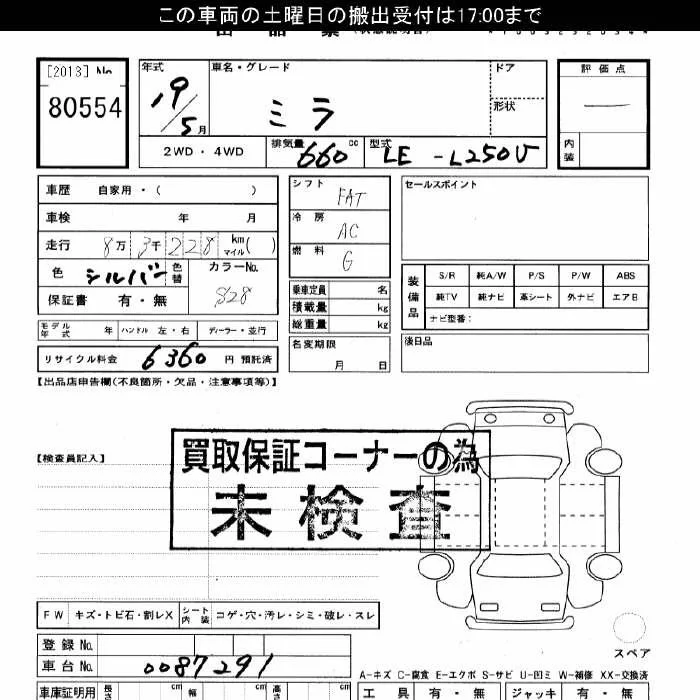 この車両の土曜日の搬出受付は17:00まで
[2013] No
80554
年式 19/5月
車名・グレード ミラ
ドア
形状
評価点
内装
2WD・4WD
排気量 660 cc
型式 LE-L250V
車歴 自家用・( )
車検 年 月
走行 8万3千228 km マイル( )
色 シルバー 色替 カラーNo. S28
保証書 有・無
シフト FAT
冷房 AC
燃料 G
乗車定員 名
積載量 kg
総重量 kg
名変期限 月 日
セールスポイント
装備品
S/R 純A/W P/S P/W ABS
純TV 純ナビ 革シート 外ナビ エアB
ナビ型番:
後日品
モデル年式 年 ハンドル 左・右 ディーラー・並行
リサイクル料金 6360 円 預託済
【出品店申告欄(不良箇所・欠品・注意事項等)】
【検査員記入】
買取保証コーナーの為
未検査
FW キズ・トビ石・割レX シート内装 コゲ・穴・汚レ・シミ・破レ・スレ
登録No.
車台No. 0087291
スペア
A-キズ C-腐食 E-エクボ S-サビ U-凹ミ W-補修 XX-交換済
車庫証明用 長さ cm 幅 cm 高さ cm
工具 有・無 ジャッキ 有・無